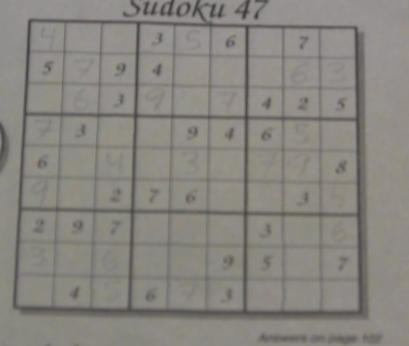 Sudoku 47
4 3 5 6 7
5 7 9 4 6 3
6 3 9 7 4 2 5
7 3 9 4 6 5
6 4 3 7 9 8
9 2 7 6 3 5
2 9 7 3 6
3 6 9 5 7
4 5 6 7 3
Answers on page 102